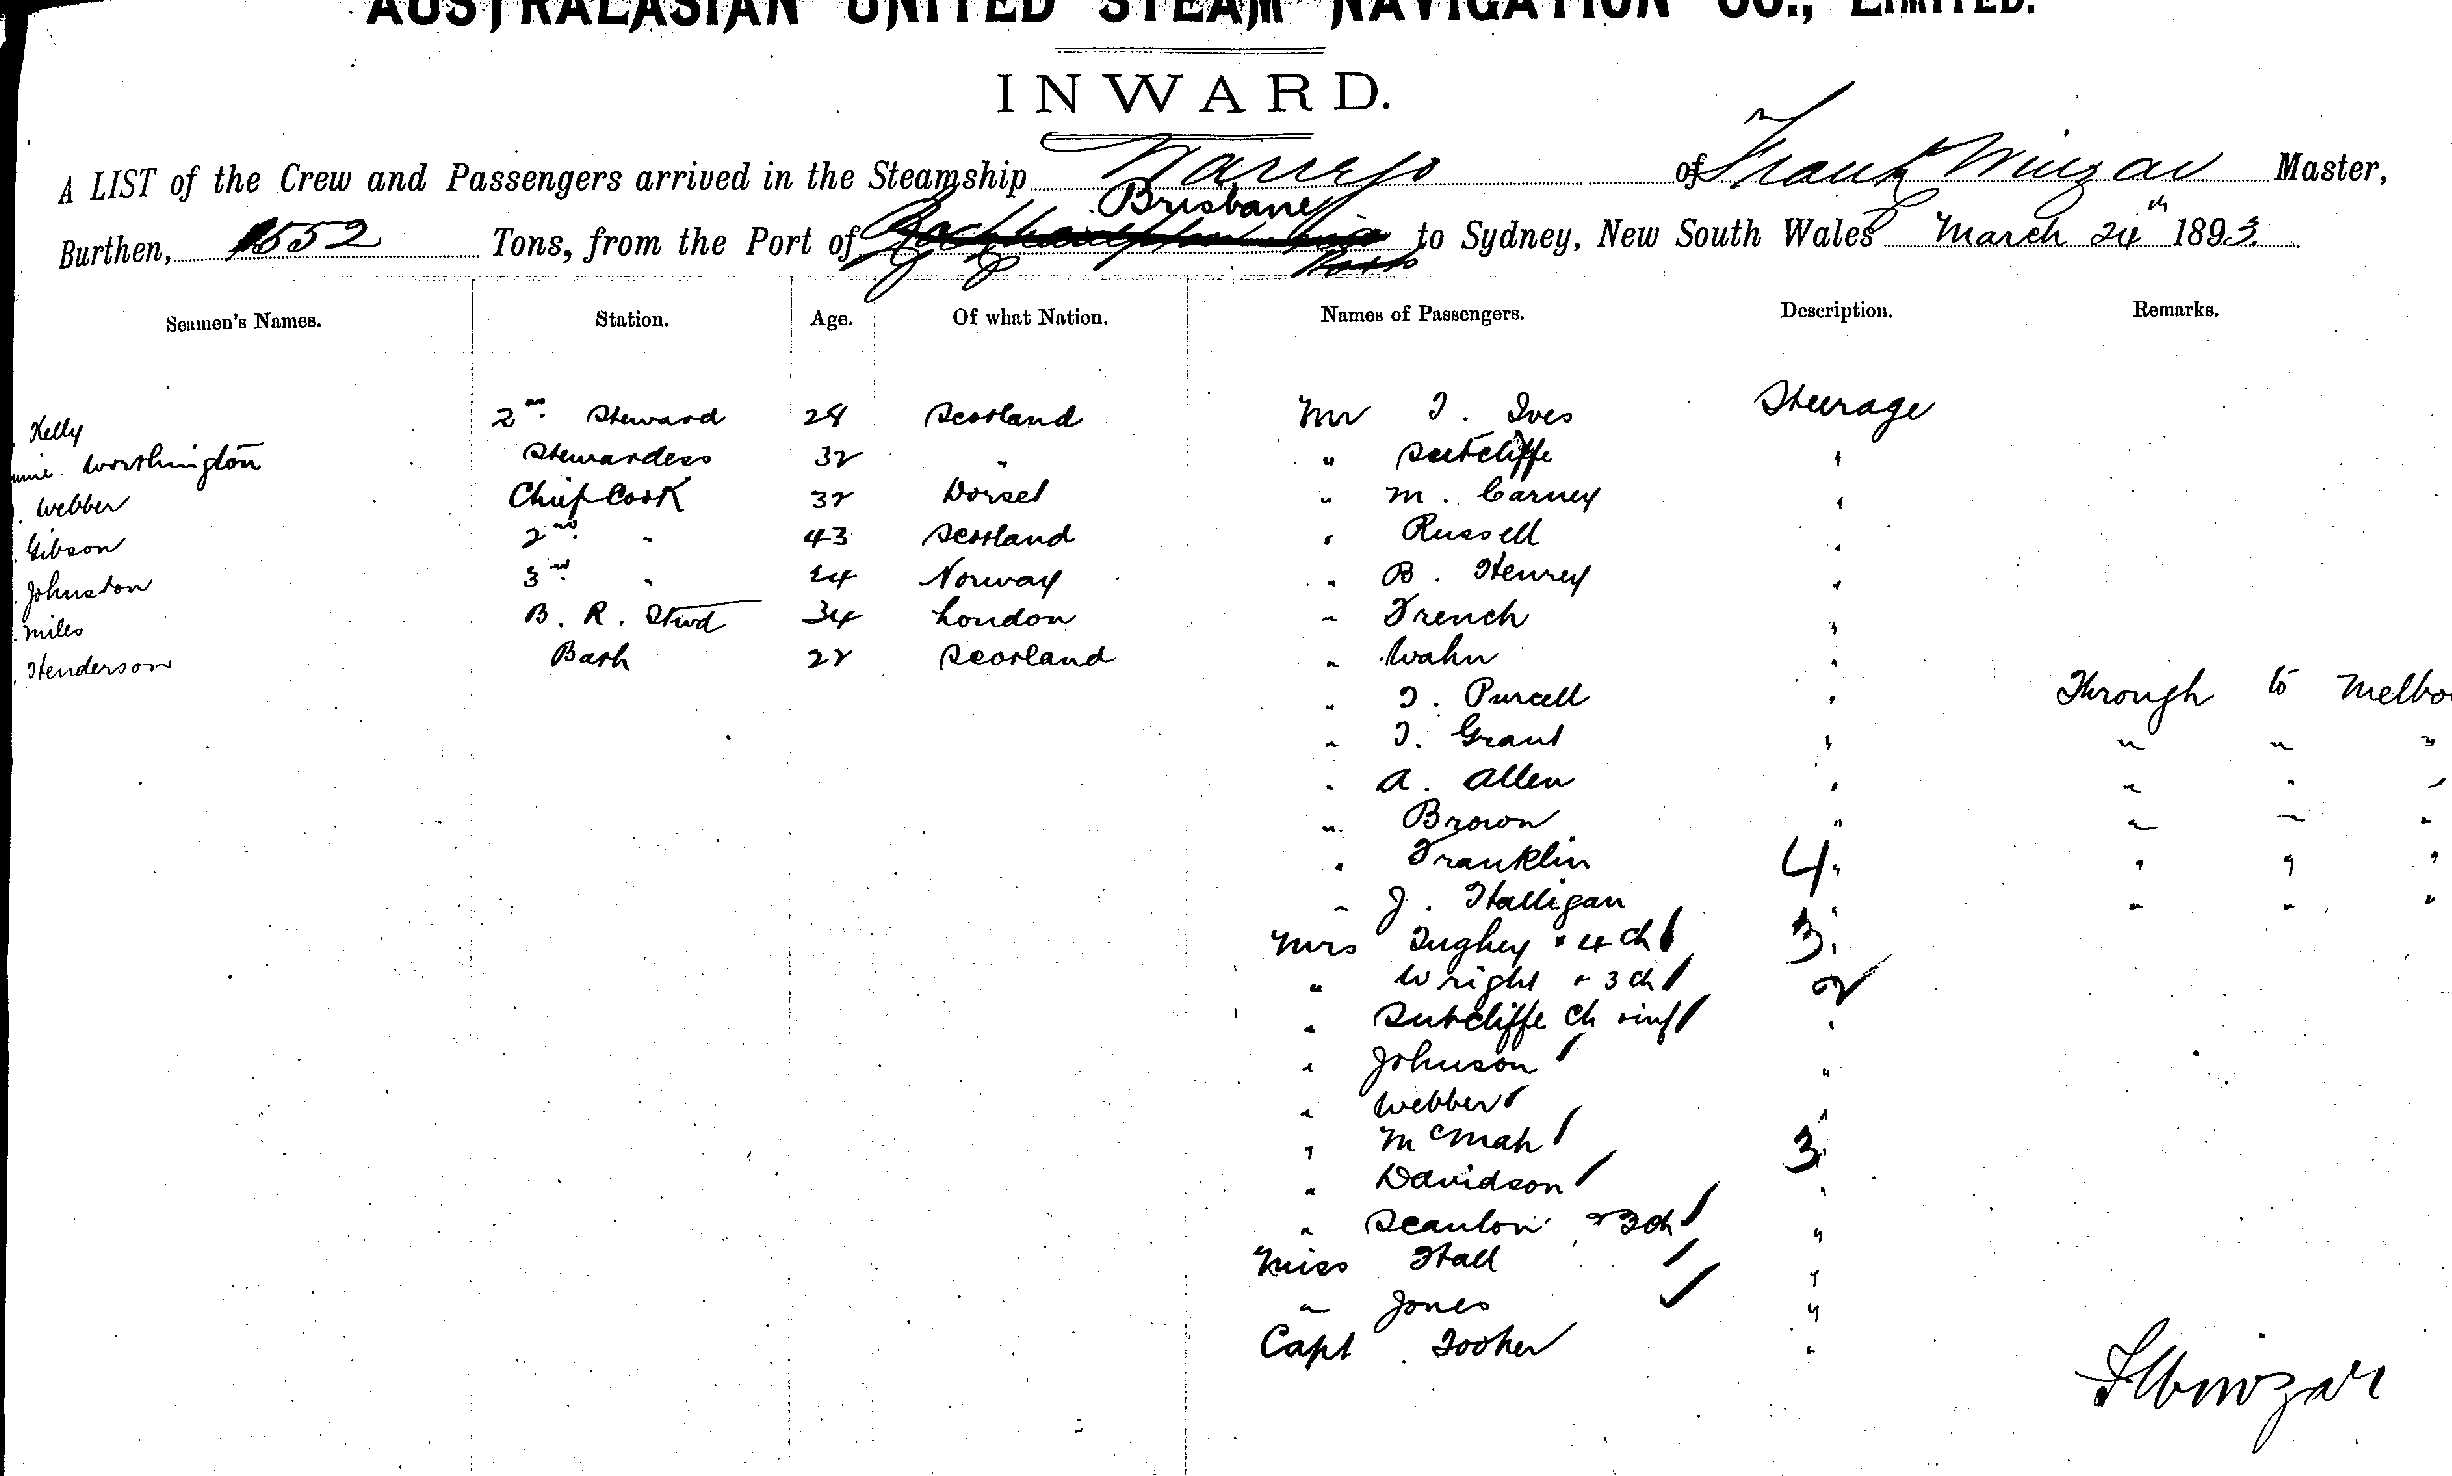 AUSTRALASIAN UNITED STEAM NAVIGATION CO., LIMITED.
INWARD.
A LIST of the Crew and Passengers arrived in the Steamship Warrego of Frank Winzar Master,
Brisbane
Burthen, 1552 Tons, from the Port of to Sydney, New South Wales March 24th 1893.
Seamen's Names. Station. Age. Of what Nation. Names of Passengers. Description. Remarks.
Kelly 2nd Steward 28 Scotland Mr T. Ives Steerage
Worthington Stewardess 32 " " Sutcliffe "
Webber Chief Cook 32 Dorset " M. Carney "
Gibson 2nd " 43 Scotland " Russell "
Johnston 3rd " 24 Norway " B. Henrey "
Miles B. R. Stwd 34 London " French "
Henderson Barh 22 Scotland " Wahn "
" T. Purcell " Through to Melbo
" T. Grant " " " "
" A. Allen " " " "
" Brown " " " "
" Franklin 4 " " " "
" J. Halligan " " " "
Mrs Tughey + 4 ch 3 "
" Wright + 3 ch 2
" Sutcliffe ch + inf "
" Johnson "
" Webber "
" McMah 3 "
" Davidson "
" Scanlon + 3 ch "
Miss Hall "
" Jones "
Capt Tooker "
F Winzar